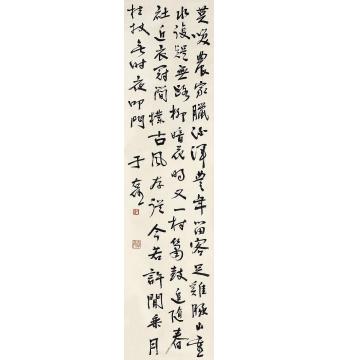 莫笑農家臘酒渾豐年留客足雞豚山重
水複疑無路柳暗花明又一村簫鼓追隨春
社近衣冠簡樸古風存從今若許閒乘月
拄杖無時夜叩門